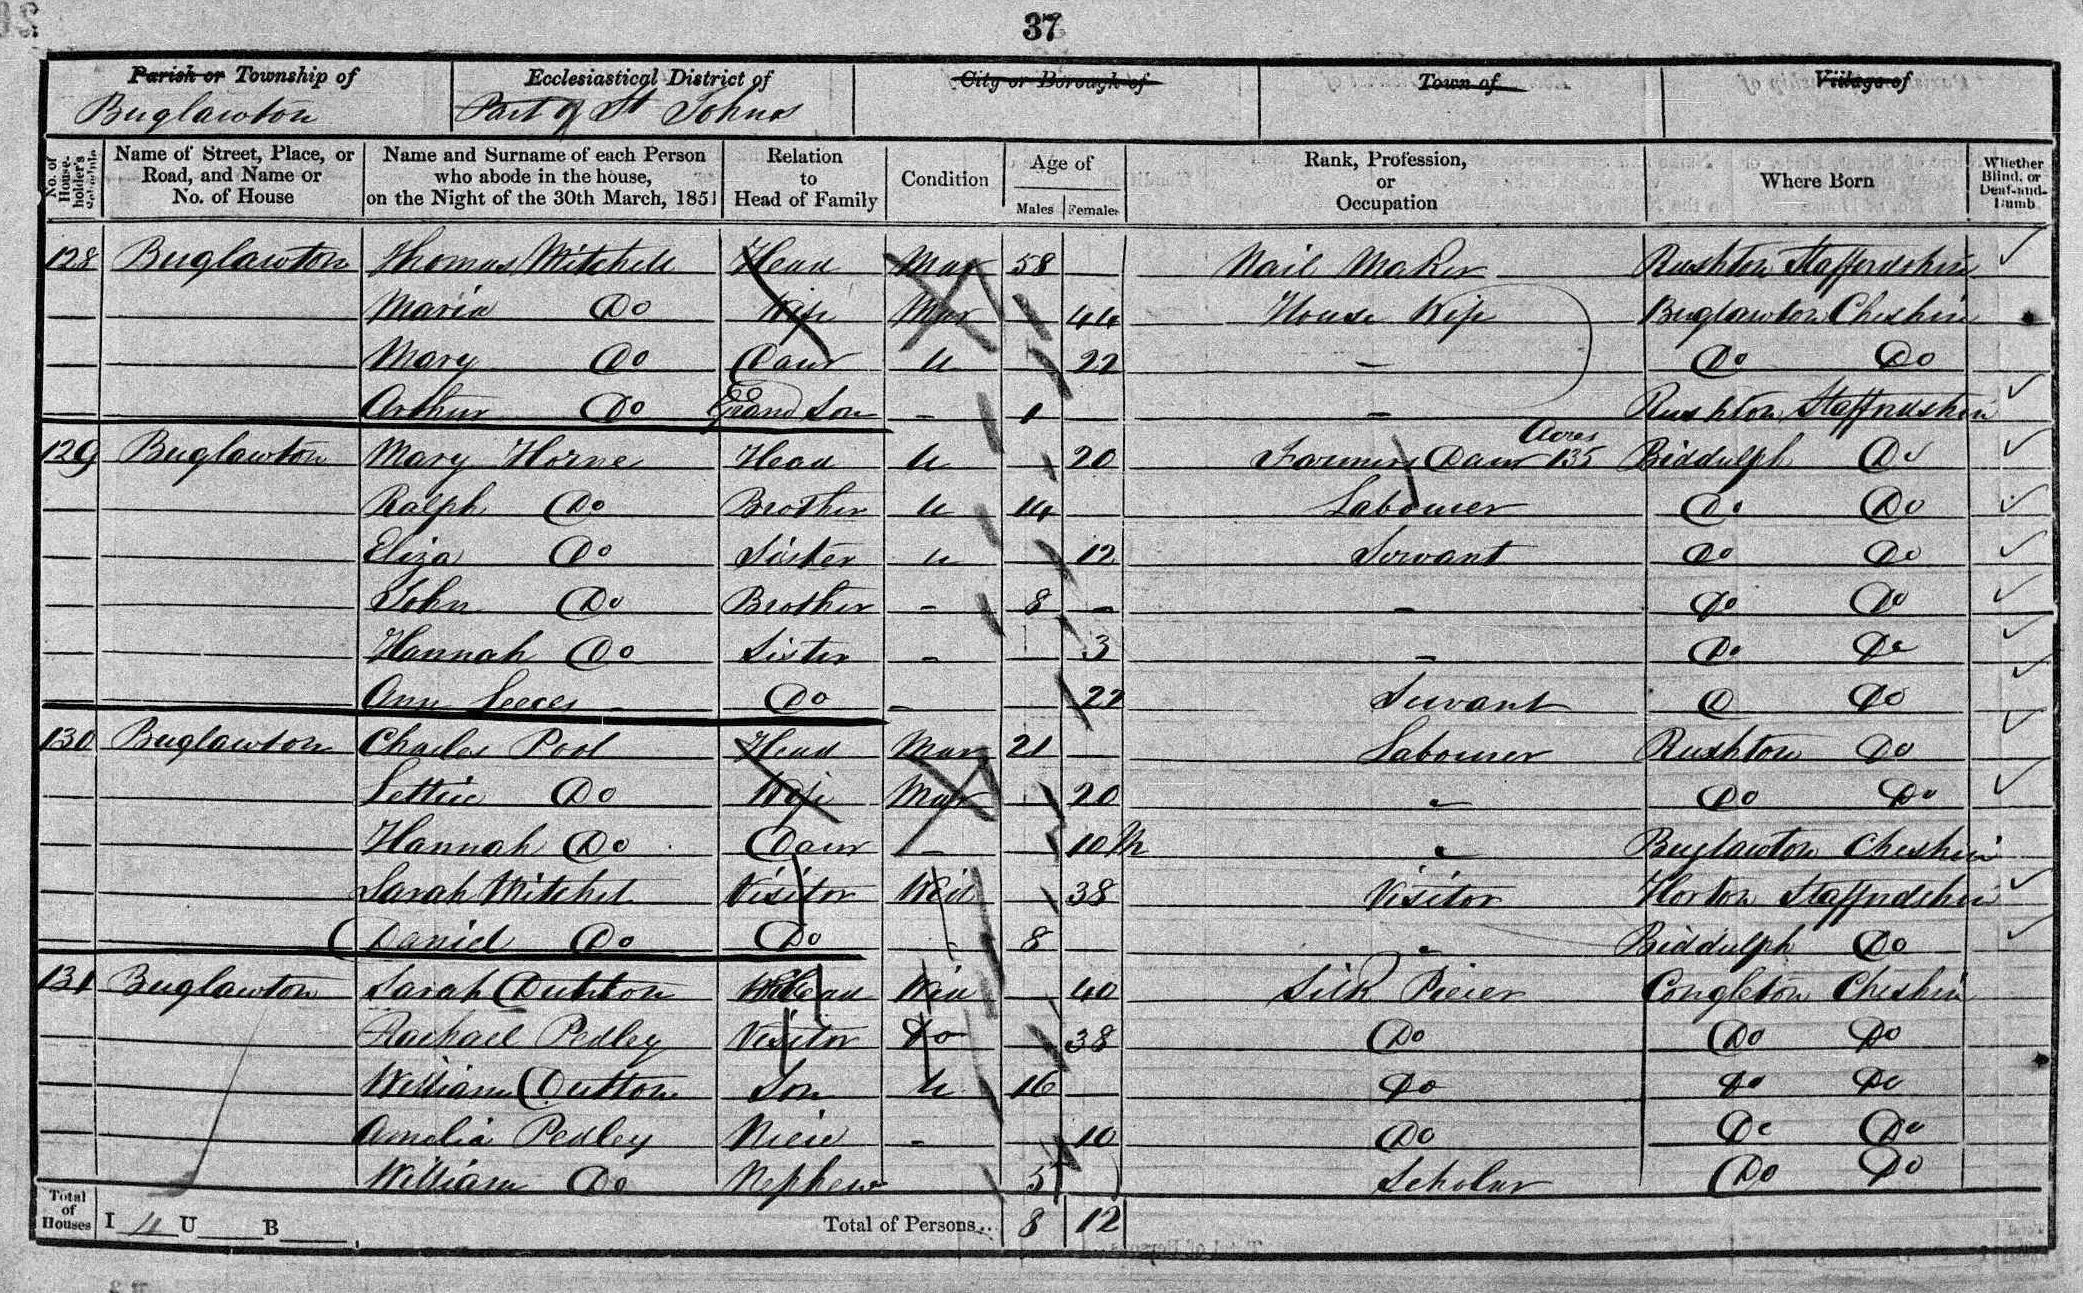 37
Parish or Township of Ecclesiastical District of City or Borough of Town of Village of
Buglawton Part of St Johns
No. of House-holder's Schedule
Name of Street, Place, or Road, and Name or No. of House
Name and Surname of each Person who abode in the house, on the Night of the 30th March, 1851
Relation to Head of Family
Condition
Age of
Males Females
Rank, Profession, or Occupation
Where Born
Whether Blind, or Deaf-and-Dumb
128 Buglawton Thomas Mitchell Head Mar 58 Nail Maker Rushton Staffordshire
Maria Do Wife Mar 44 House Wife Buglawton Cheshire
Mary Do Daur U 22 - Do Do
Arthur Do Grand Son - 1 - Rushton Staffordshire
129 Buglawton Mary Horne Head U 20 Farmers Daur 135 Acres Biddulph Do
Ralph Do Brother U 14 Labourer Do Do
Eliza Do Sister U 12 Servant Do Do
John Do Brother - 8 - - Do Do
Hannah Do Sister - 3 - Do Do
Ann Do - 22 Servant Do Do
130 Buglawton Charles Pool Head Mar 21 Labourer Rushton Do
Lettice Do Wife Mar 20 Do Do
Hannah Do Daur - 10 M Buglawton Cheshire
Sarah Mitchel Visitor Wid 38 Visitor Horton Staffordshire
Daniel Do Do - 8 Biddulph Do
131 Buglawton Sarah Dutton Head Wid 40 Silk Piecer Congleton Cheshire
Rachael Pedley Visitor Do 38 Do Do Do
William Dutton Son U 16 Do Do Do
Amelia Pedley Niece - 10 Do Do Do
William Do Nephew 5 Scholar Do Do
Total of Houses I 4 U B Total of Persons.. 8 12